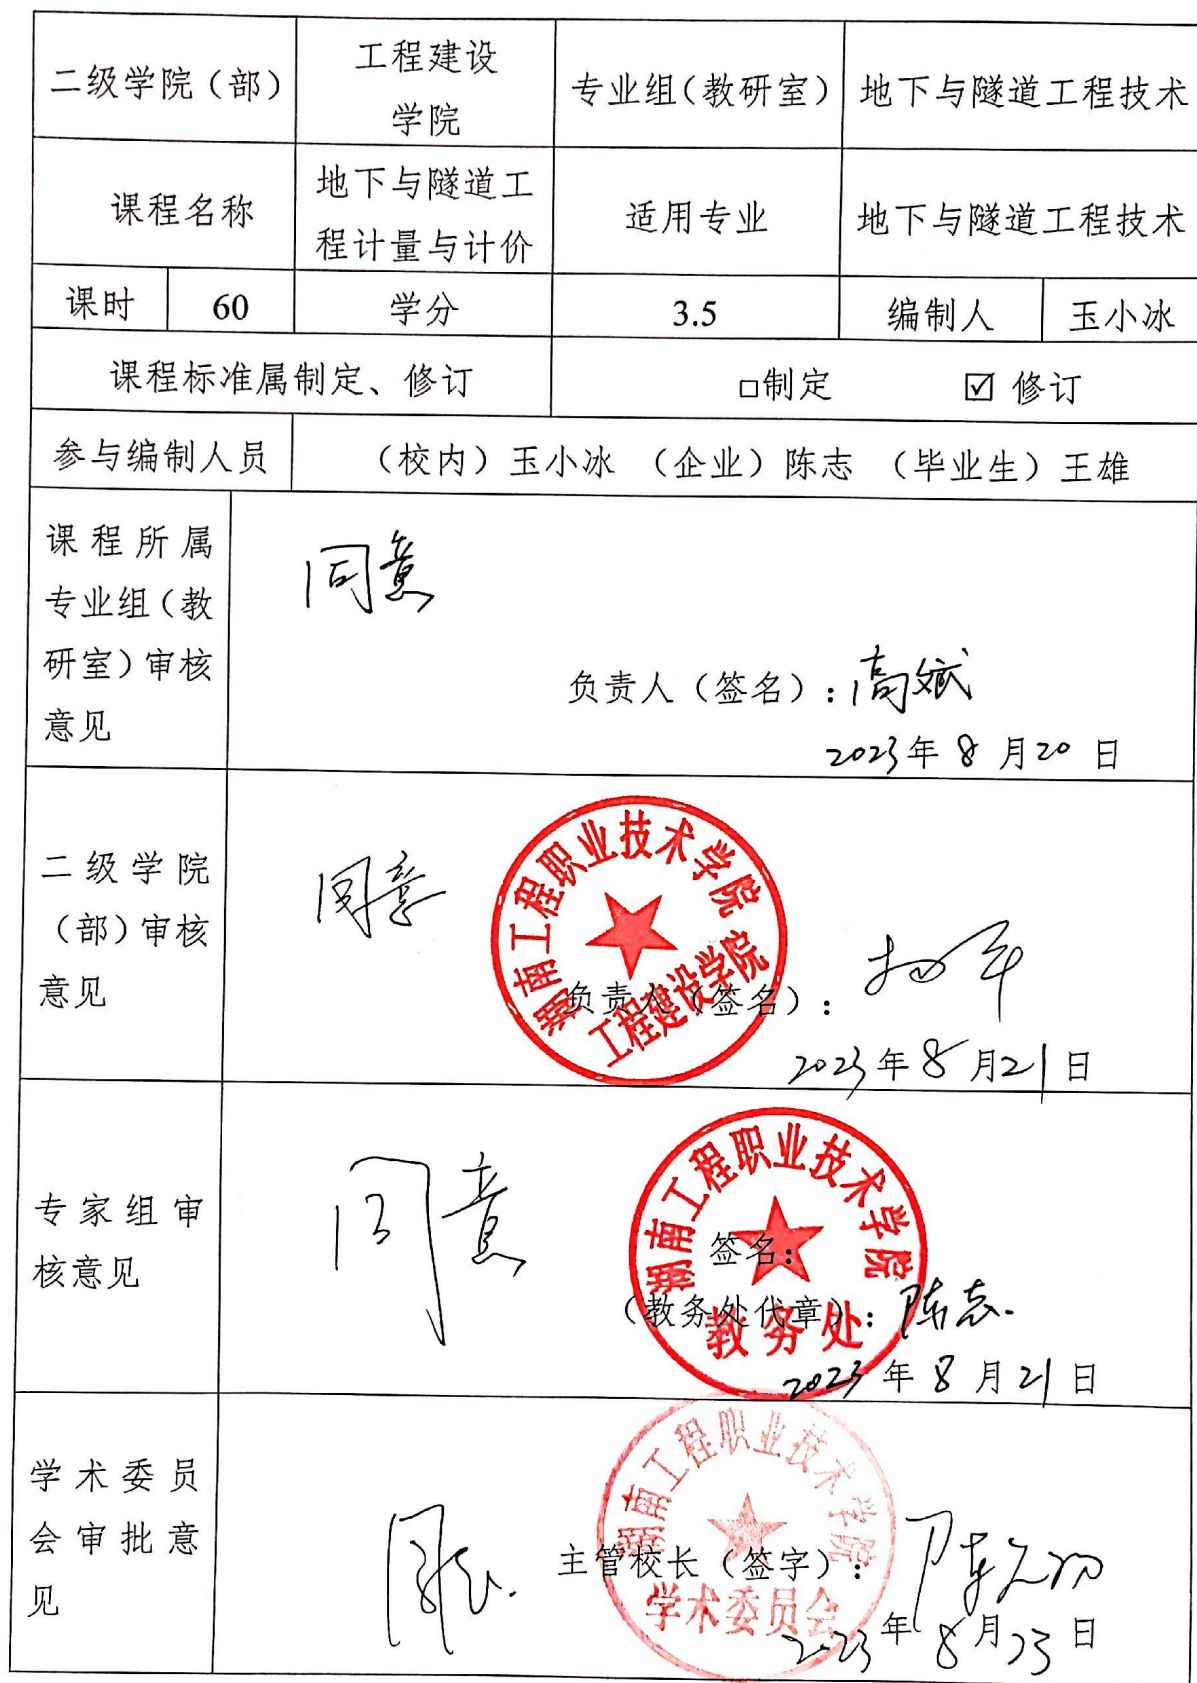 二级学院（部）
工程建设
学院
专业组（教研室）
地下与隧道工程技术
课程名称
地下与隧道工
程计量与计价
适用专业
地下与隧道工程技术
课时
60
学分
3.5
编制人
玉小冰
课程标准属制定、修订
□制定 ☑ 修订
参与编制人员
（校内）玉小冰 （企业）陈志 （毕业生）王雄
课程所属
专业组（教
研室）审核
意见
同意
负责人（签名）：高斌
2023年 8 月20 日
二级学院
（部）审核
意见
同意
湖南工程职业技术学院
工程建设学院
负责人（签名）：
2023年 8 月21日
专家组审
核意见
同意
湖南工程职业技术学院
教务处
签名：
（教务处代章）：陈志
2023年 8 月21日
学术委员
会审批意
见
同意
湖南工程职业技术学院
学术委员会
主管校长（签字）：
2023年 8 月23日